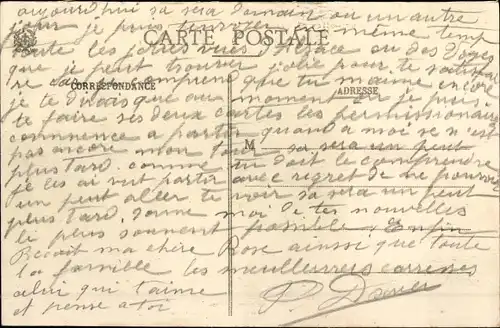 aujourd'hui sa sera demain ou un autre
jour je puis t'envoyer même temp
CARTE POSTALE
toute les jolies vues d'Isace ou des Voges
que je peut trouver jolie pour te satisfai
re comprend que tu m'aime encore
CORRESPONDANCE
ADRESSE
je te dirais que au moment ou je puis
te faire ses deux cartes les permissionaire
commence a partir quand a moi se n'est
pas encore mon M sa sera un peut
plus Tard. comme tu doit le comprendre
je les ai vut partir avec regret de ne pouvoir
un peut aller te voir sa sera un peut
plus Tard, donne moi de tes nouvelles
le plus souvent possible. Enfin
Recoit ma chère Rose ainssi que toute
la famille les meulleures carresses
celui qui t'aime
et pense a toi P.